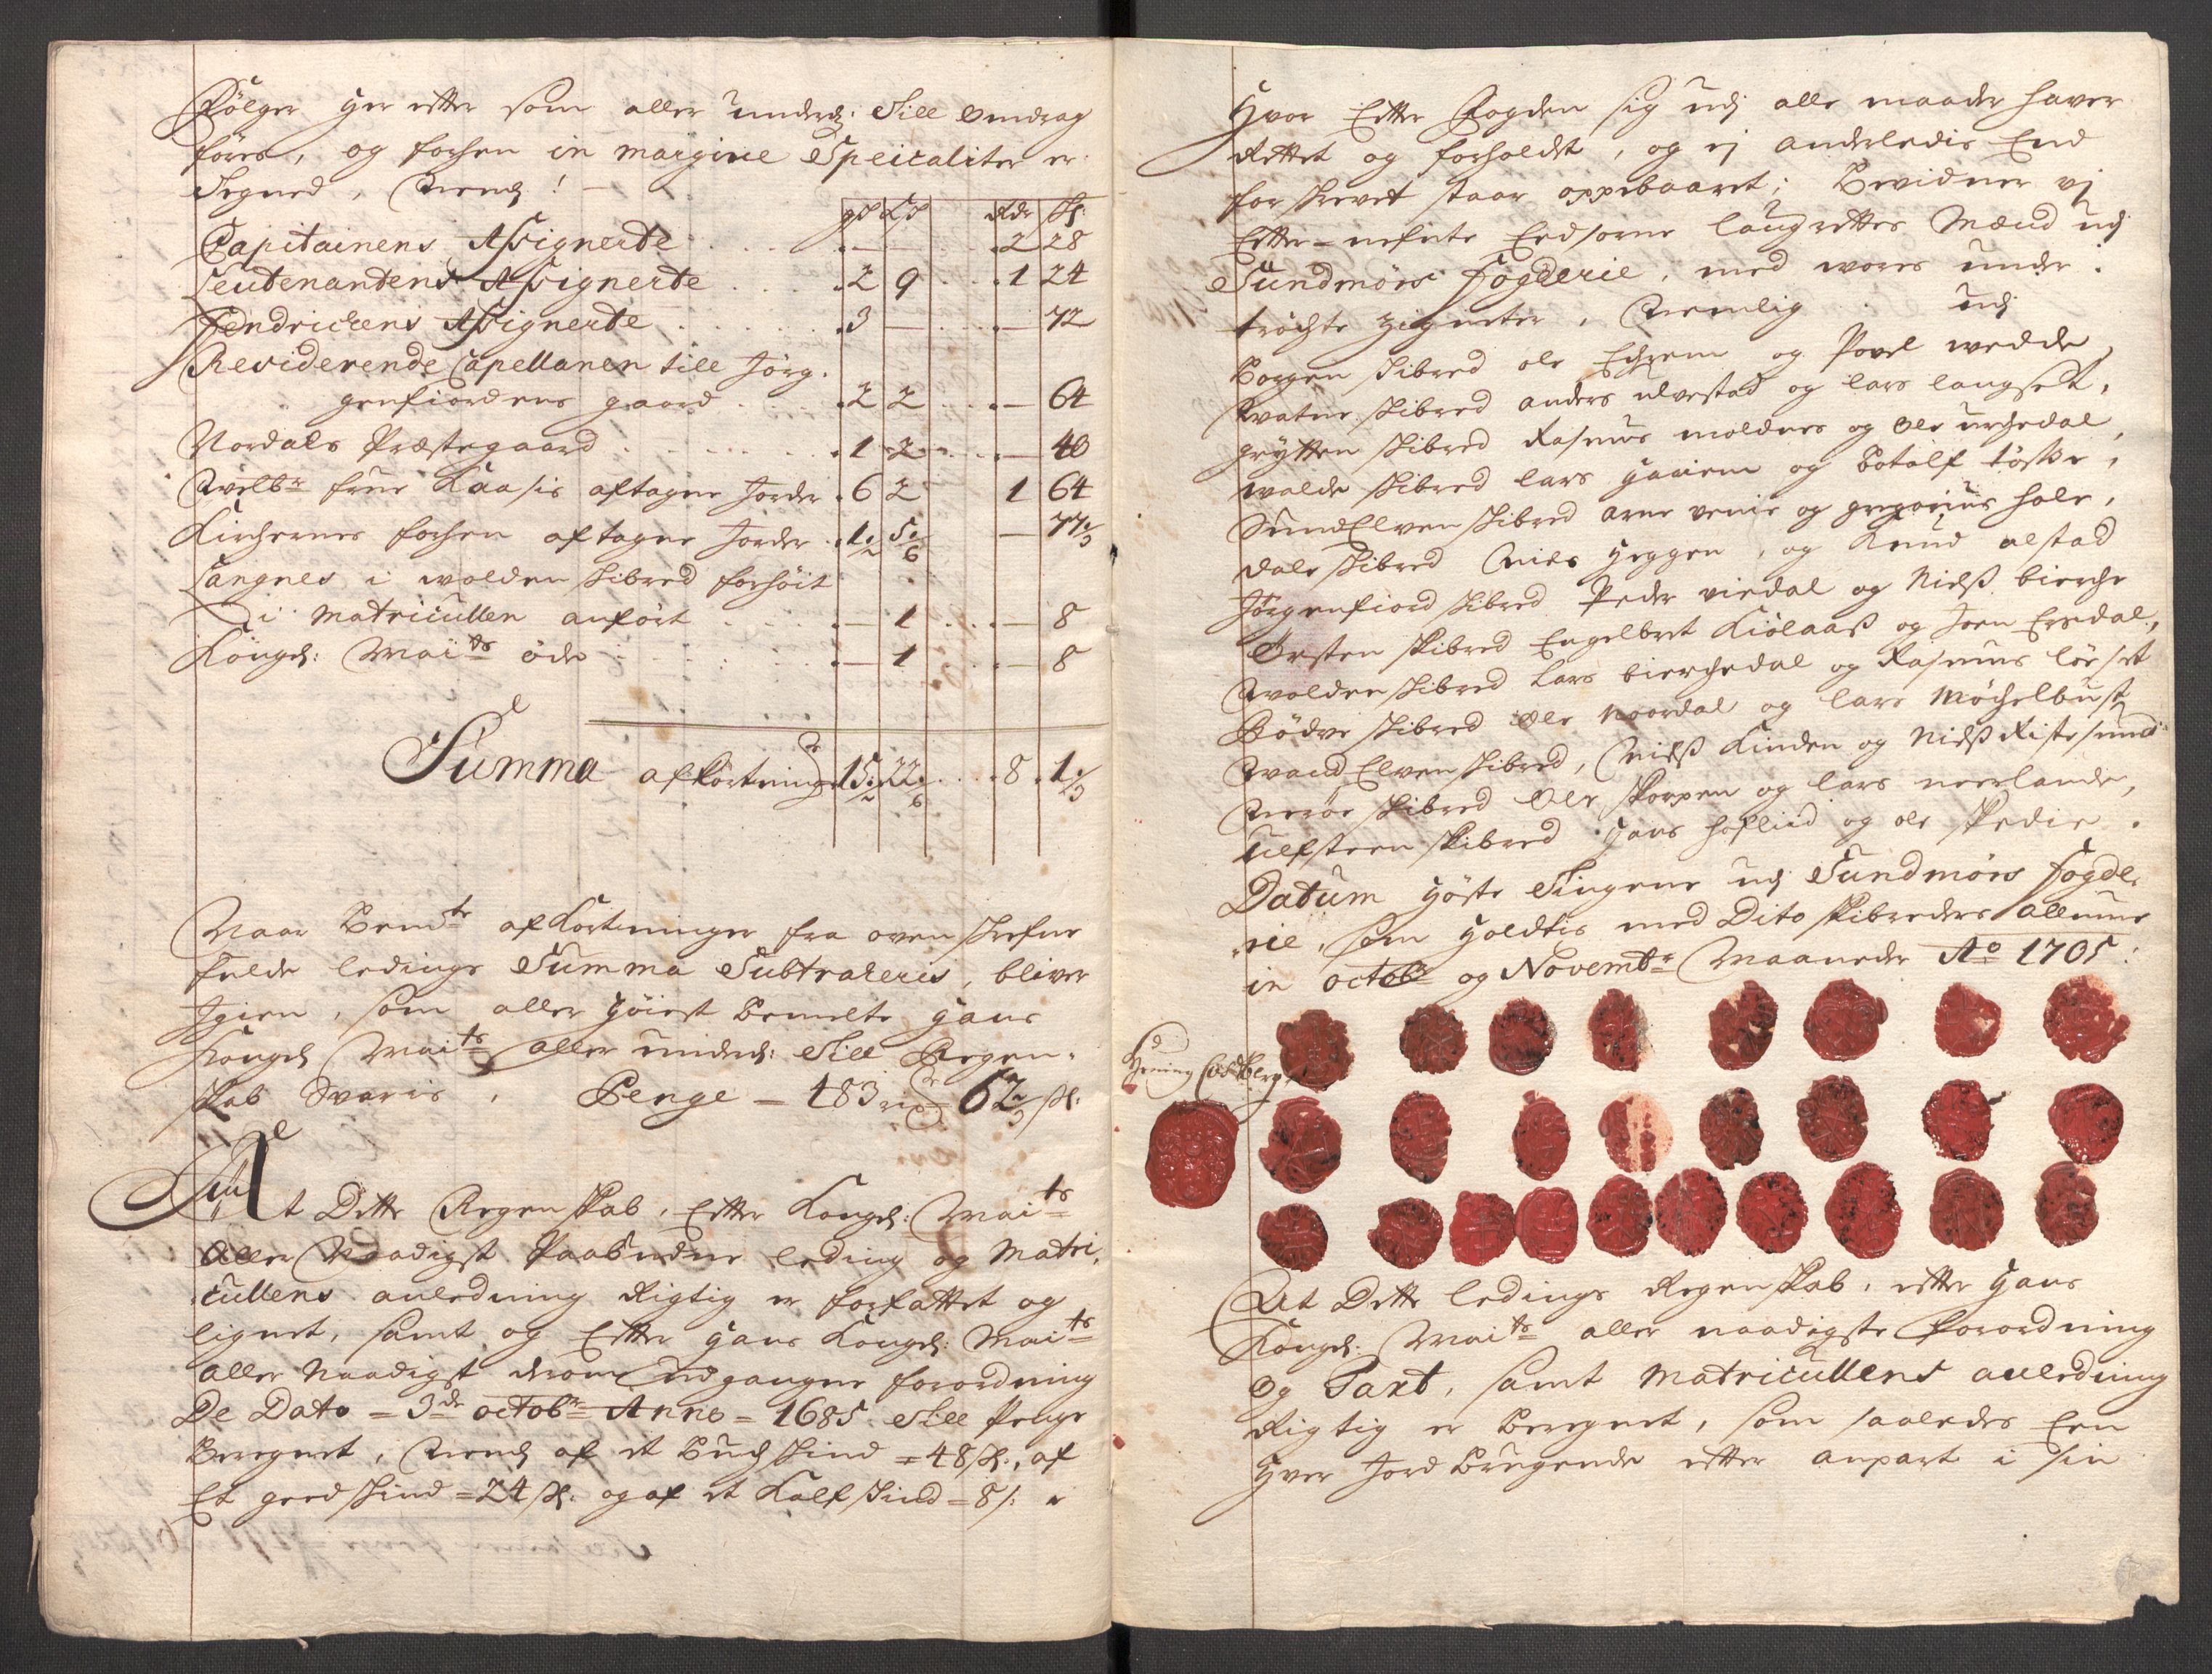 Fölger her efter som aller underd: Till Omdrag
föres, og forhen in margine Speicaliter er
Tegned, Nemd!
gs Ks Rdr sk:
Capitainens Assignerte . . . — 2 28
Leutenantens Assignerte . . 2 9 . . 1 24
Fendrichens Assignerte . . . 3 — . . — 72
Residerende Capellanen till Jörg-
genfiordens gaard . . 2 2 . . — 64
Nordals Præstegaard . . . 1 2 . . — 40
Welb: frue Kaasis aftagne Jorder . 6 2 1 64
Kirchernes forhen aftagne Jorder . 1 1/2 5/6 — 77 1/3
Langnes i wolden skibred forhöit
i Matricullen anfört . . — 1 . . — 8
Kongl: Maits öde . . . — 1 . — 8
Summa afkortninger 15 1/2 22 1/6 . . 8 . 1 1/3
Naar Bemte afkortninger fra ovenskrefne
fulde ledings Summa Subtraheris, bliver
Igien, som aller höiest Bemelte Hans
Kongl Maits aller underd: Till Regen-
skab Svaris, Penge — 483 rdr 62 2/3 sk:
At Dette Regenskab, Efter Kongl: Maits
Aller Naadigst Paabudne leding og Matri-
cullens anledning Rigtig er forfattet og
lignet, samt og Efter Hans Kongl: Maits
aller Naadigst derom udgangne forordning
De Dato = 3de octobr Anno = 1685. Till Penge
Beregnet, Nemd af et Buchskind = 48 sk:, af
Et geedskind = 24 sk: og af et Kalfskind = 8 s:
Hvor Efter Fogden sig udj alle maader haver
Rettet og forholdet, og ej anderledis End
forskrevet staar oppebaaret; Bevidner vj
Efter-nefnte Eedsorne laugrettes Mænd udj
Sundmörs Fogderie, med wores under-
tröchte Zigneter, Nemlig udj
Borgen skibred ole Echrem og Povel wedde,
Watne skibred anders ulvestad og lars langset,
Grytten skibred Rasmus moldnes og Ole urchedal,
walde skibred lars Haaiem og Botolf tössse,
SundElven skibred arne venie og gregorius hole,
Dale skibred Niels Heggen, og Knud alstad
Jörgenfiord skibred Peder viedal og Nielß bierche
Örsten skibred Engelbret Kiölaaß og Joen Ersdal,
Wolden skibred Lars bierchedal og Rasmus löeset
Rödve skibred Ole Noordal og lars Möchelbust,
WandElven skibred, Nielß Kinden og Nielß Ristesund
Neröe skibred Ole skorpen og lars neerlande,
Ulfsteen skibred Hans hoflid og ole Skedie.
Datum Höste Tingene udj Sundmörs Fogde-
rie, som Holdtis med Dito skibreders allmue
in octobr og Novembr Maaneder Ao 1705:
At Dette ledings Regenskab, efter Hans
Kongl: Maits aller naadigste forordning
Og Taxt, samt Matricullens anledning
Rigtig er Beregnet, som saaledes Een
Hver Jord Brugende efter anpart i sin